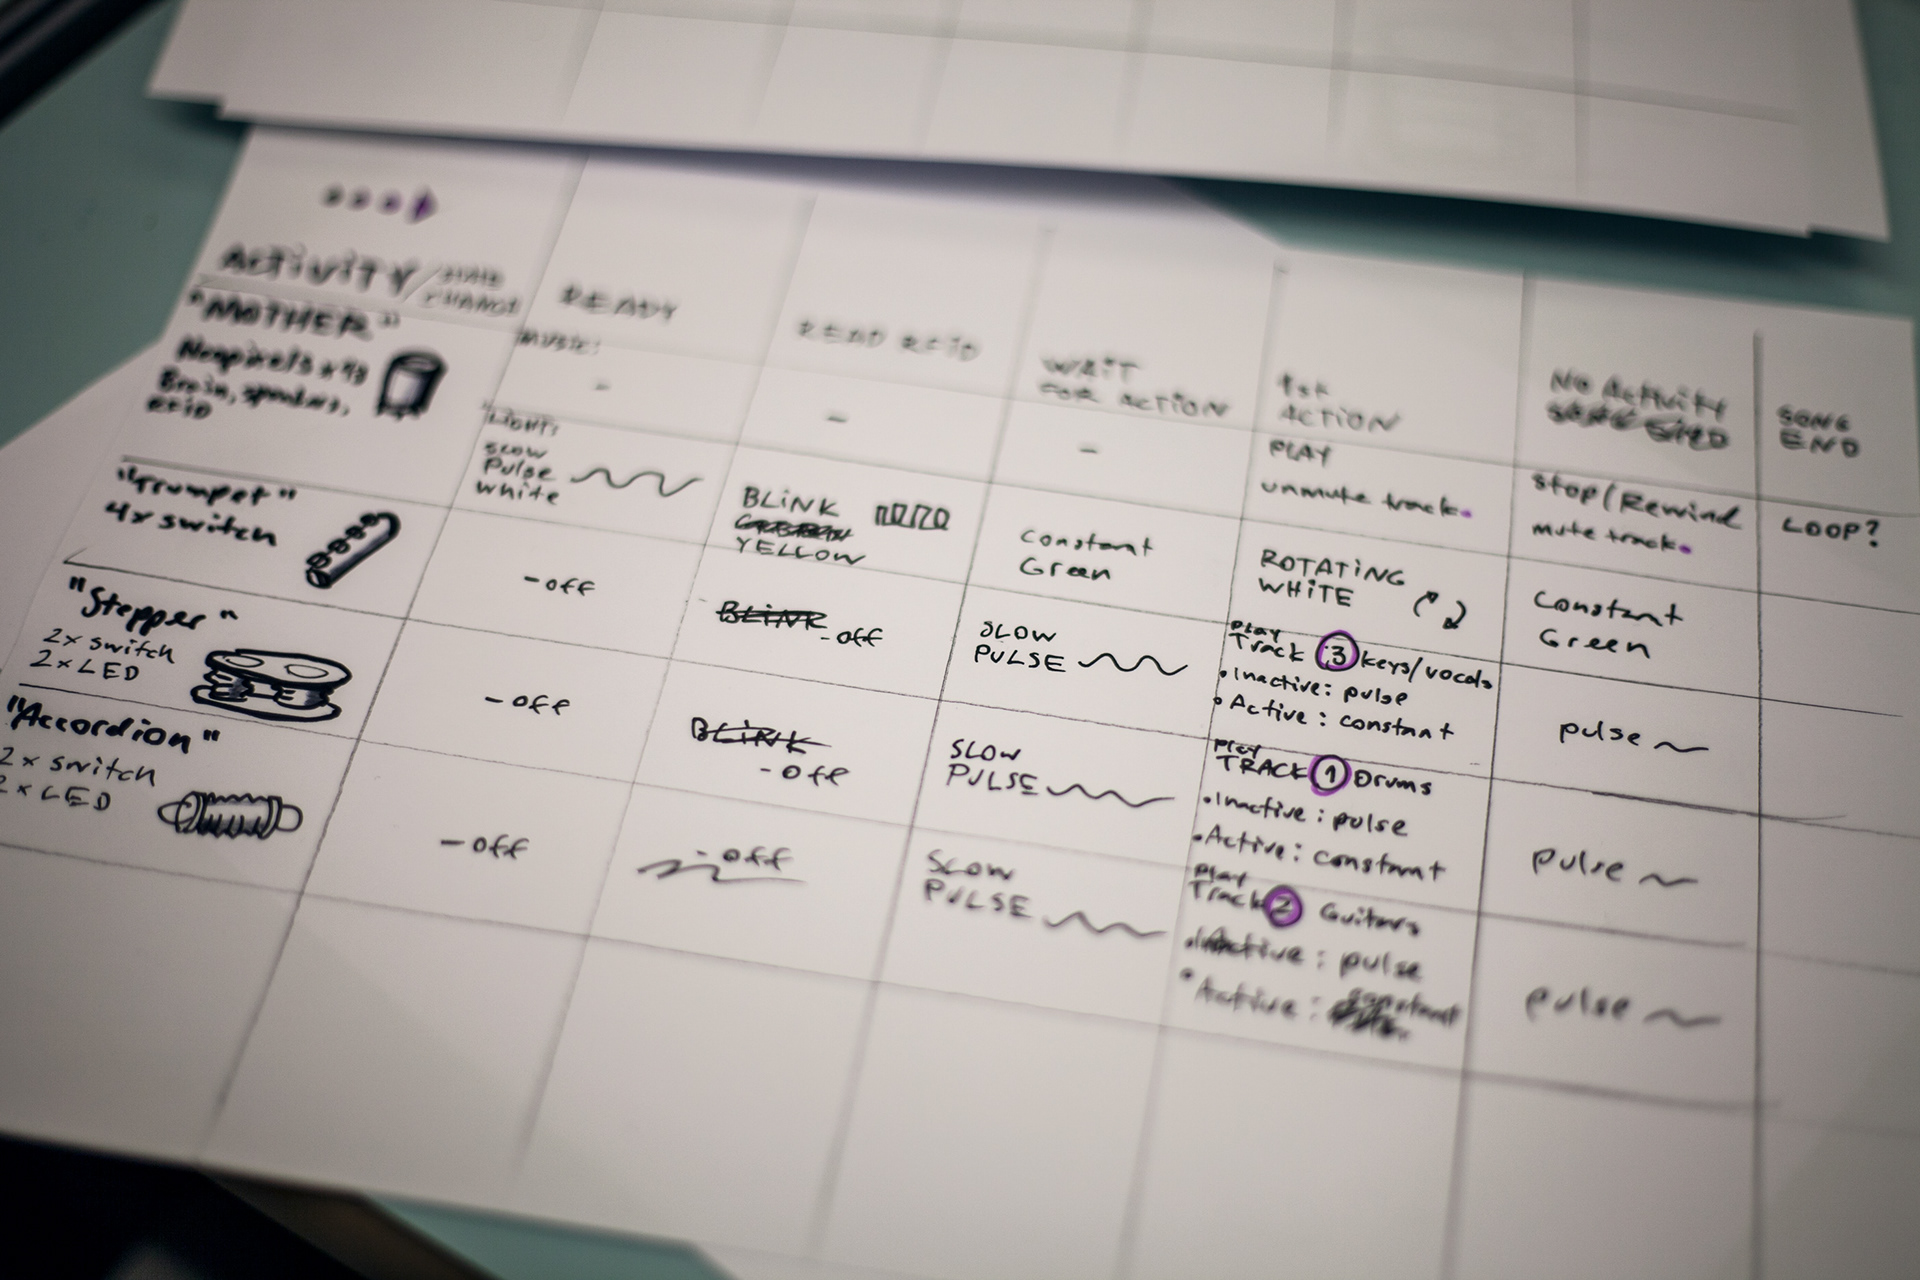 ACTIVITY / STATE CHANGE
READY
READ RFID
WAIT
FOR ACTION
1st
ACTION
No Activity
SONG END
SONG
END
"MOTHER"
Neopixels x
Brain, speakers,
RFID
MUSIC:
-
-
-
PLAY
unmute track.
Stop/Rewind
mute track.
LOOP?
LIGHT:
SLOW
Pulse
white
BLINK
YELLOW
Constant
Green
ROTATING
WHITE
Constant
Green
"Trumpet"
4x switch
-off
BLINK
-off
SLOW
PULSE
Play
Track 3 keys/vocals
• Inactive: pulse
• Active: constant
pulse
"Stepper"
2x switch
2x LED
-off
BLINK
-off
SLOW
PULSE
Play
TRACK 1 Drums
• Inactive: pulse
• Active: constant
pulse
"Accordion"
2x switch
2x LED
-off
-off
SLOW
PULSE
Play
Track 2 Guitars
• Inactive: pulse
• Active: constant
pulse